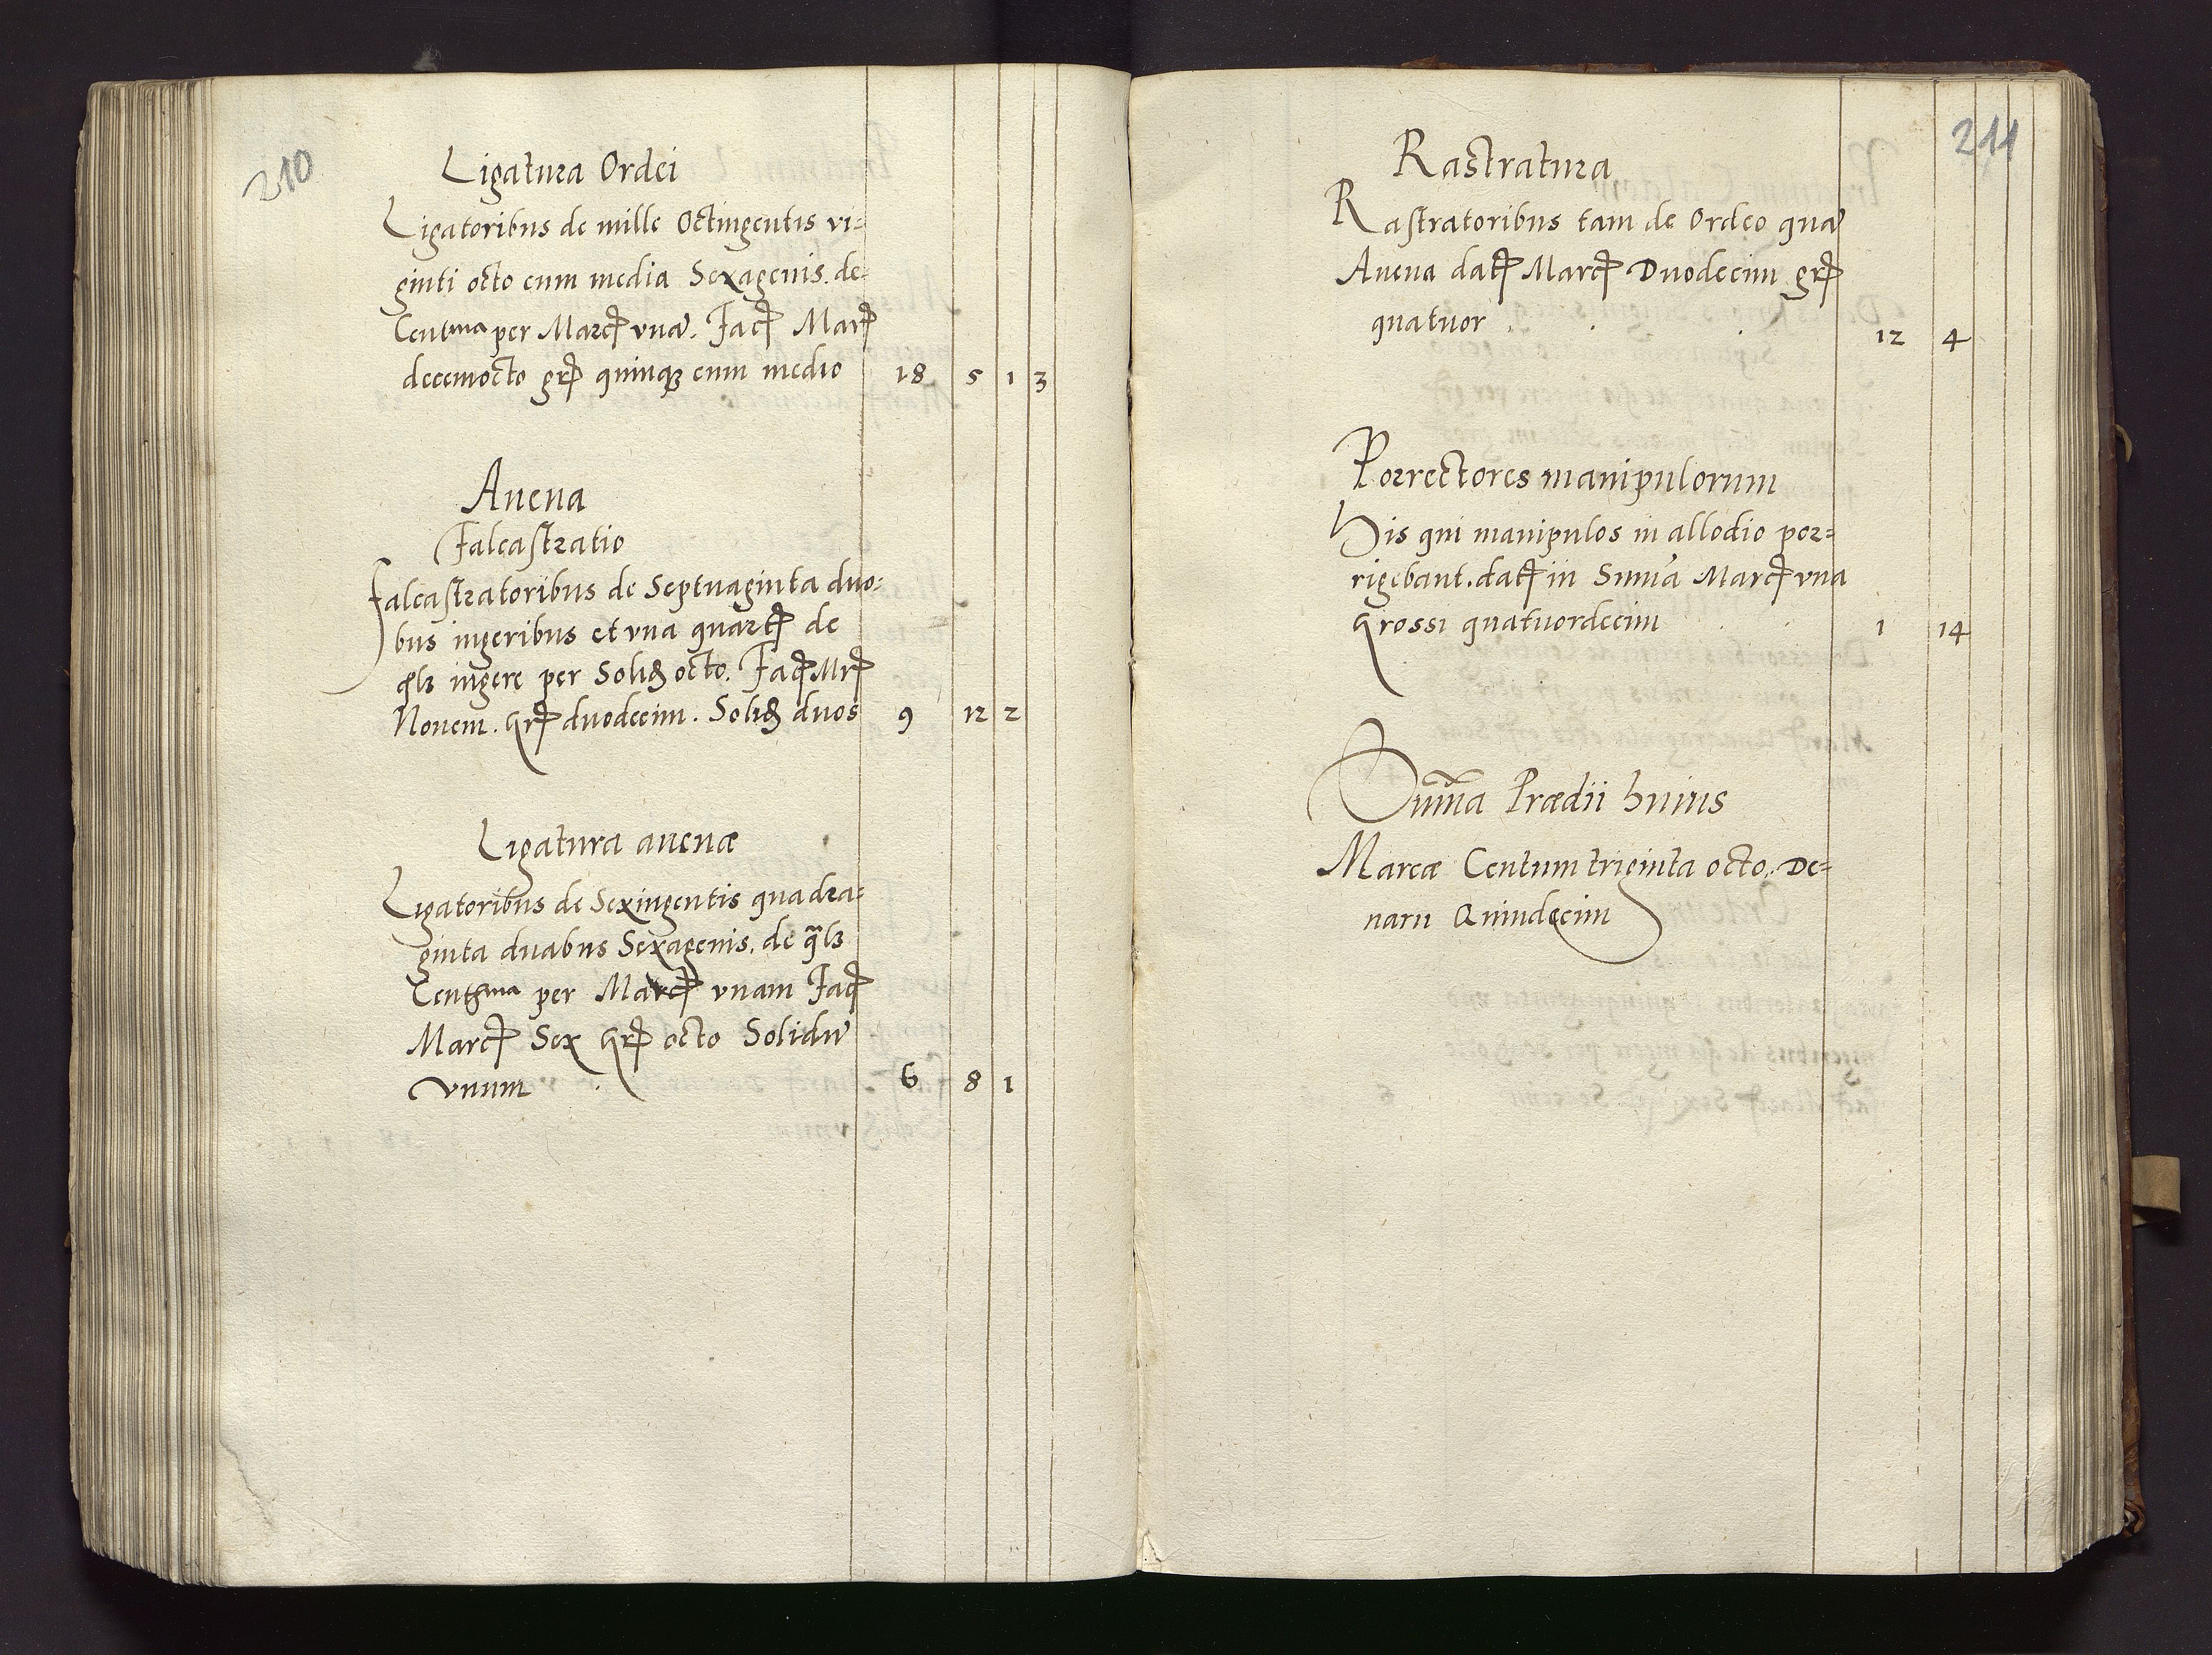 210
Ligatura Ordei
Ligatoribus de mille Octingentis vi=
ginti octo cum media Sexagenis. de
Centma per Marcꝭ vnā. Facꝭ Marꝭ
decemocto grꝭ quinqꝫ cum medio 18 5 1 3
Auena
Falcastratio
Falcastratoribus de Septuaginta duo=
bus iugeribus et vna quartꝭ de
qlꝫ iugere per Solid octo. Facꝭ Mrꝭ
Nouem. Grꝭ duodecim. Solid duos 9 12 2
Ligatura auenæ
Ligatoribus de Sexingentis quadra=
ginta duabus Sexagenis. de qlꝫ
Centma per Marcꝭ vnam Facꝭ
Marcꝭ Sex Grꝭ octo Solidū
vnum 6 8 1
211
Rastratura
Rastratoribus tam de Ordeo quā
Auena datꝭ Marcꝭ Duodecim grꝭ
quatuor 12 4
Porrectores manipulorum
His qui manipulos in allodio por=
rigebant. datꝭ in Suma Marcꝭ vna
Grossi quatuordecim 1 14
Suma Prædii huius
Marcæ Centum triginta octo. De=
narii Quindecim